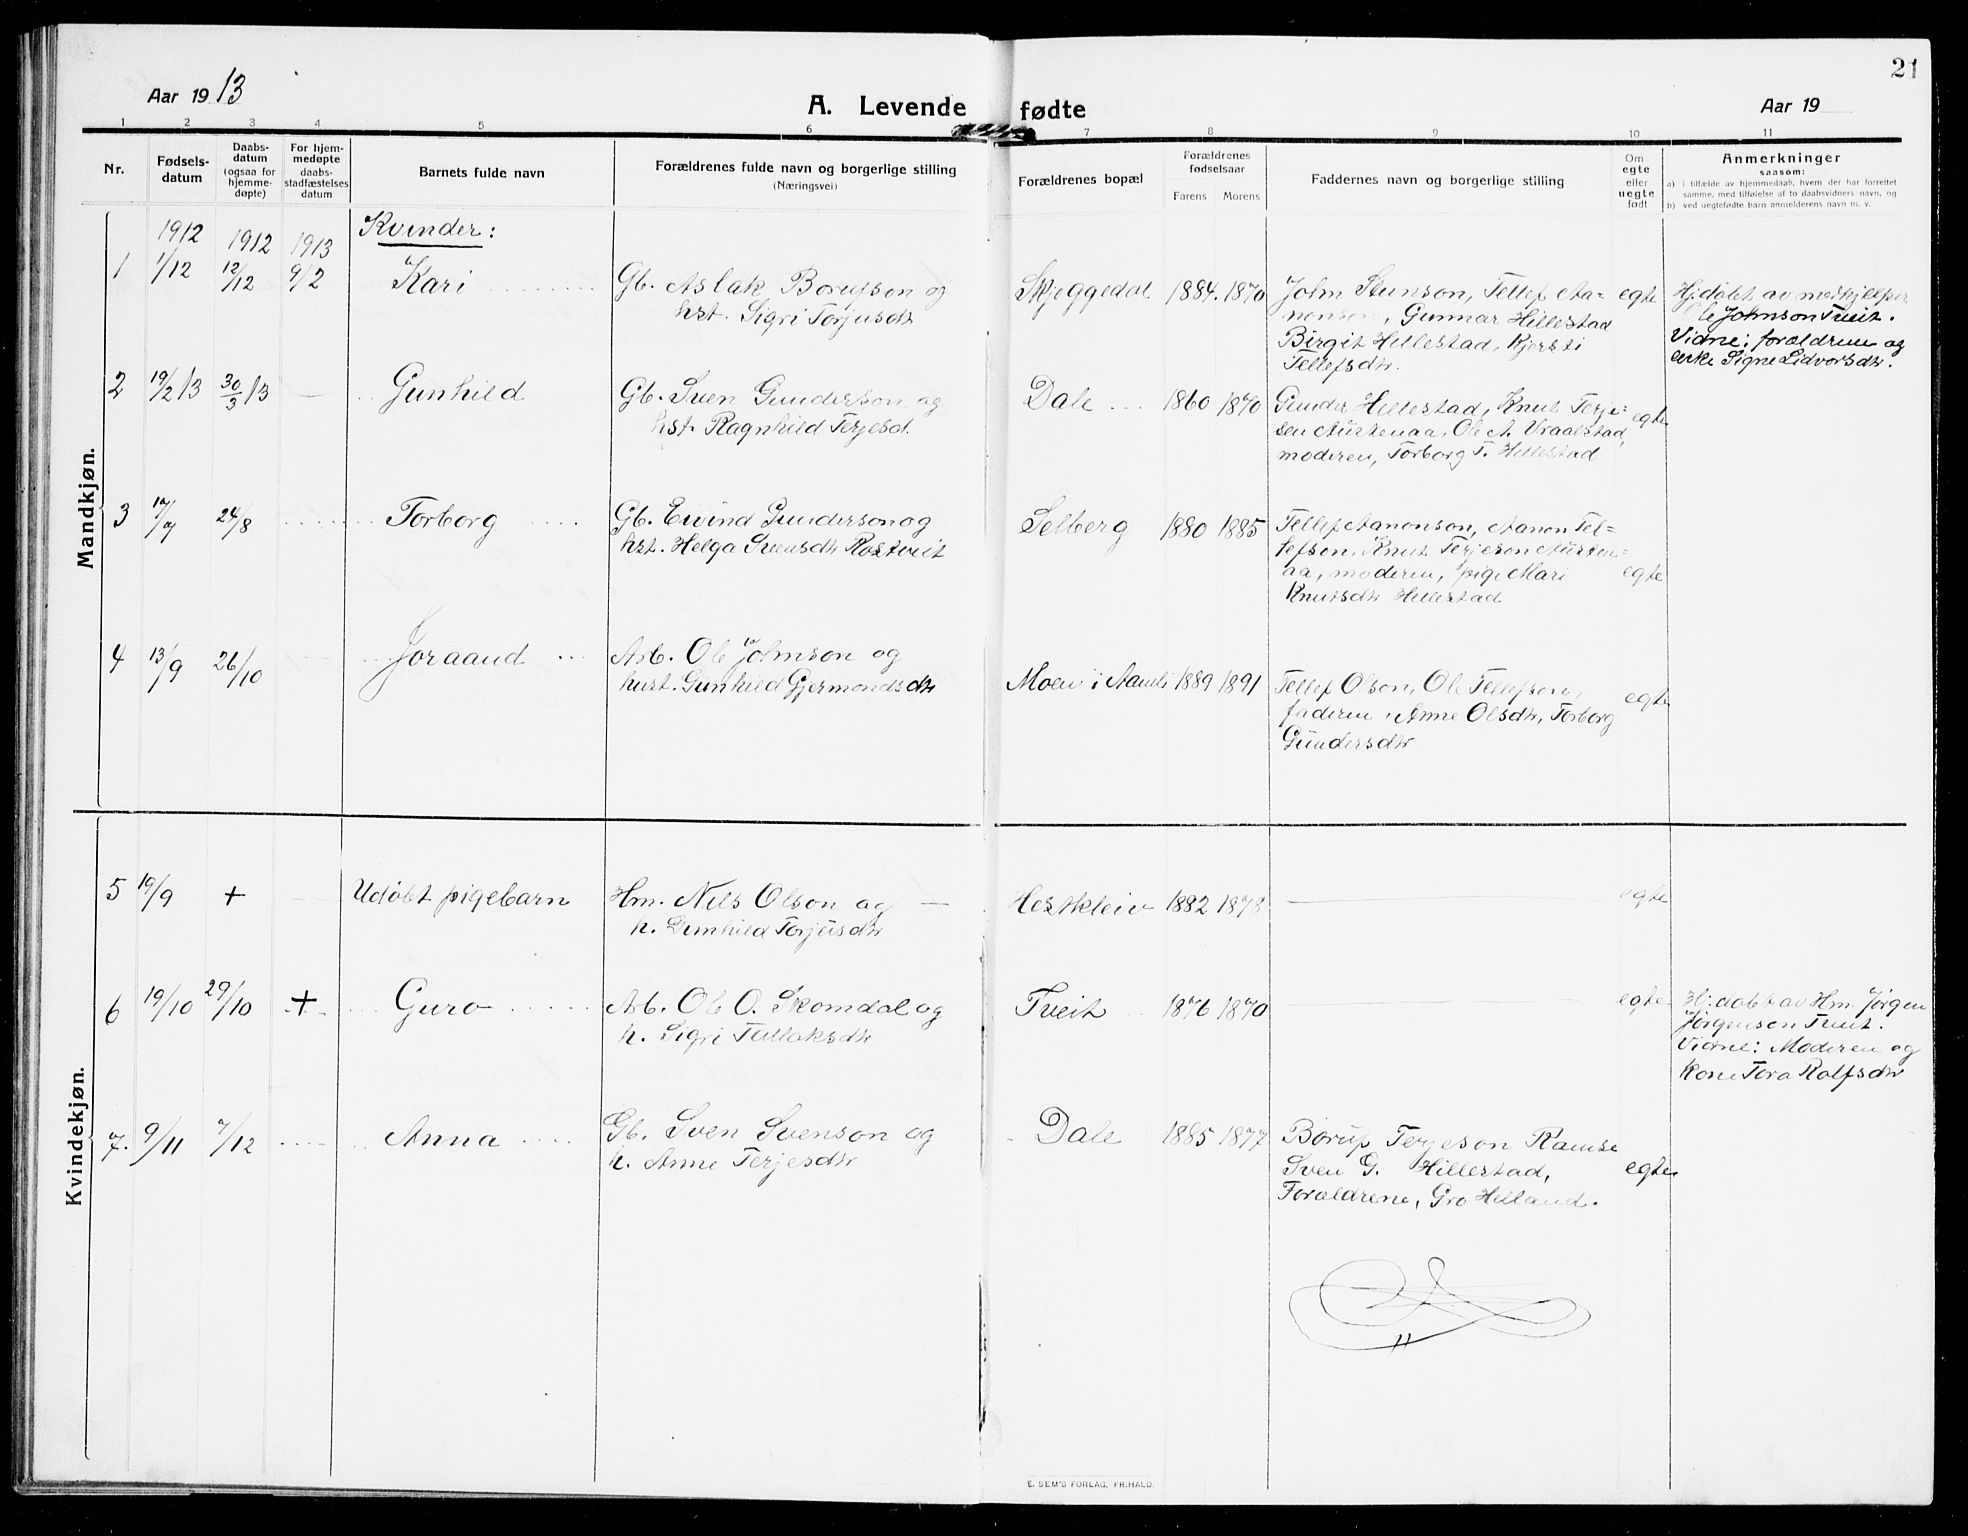 21
Aar 1913
A. Levende fødte
Aar 19
1 2 3 4 5 6 7 8 9 10 11
Nr.
Fødsels-
datum
Daabs-
datum
(ogsaa for
hjemme-
døpte)
For hjem-
medøpte
daabs-
stadfæstelses
datum
Barnets fulde navn
Forældrenes fulde navn og borgerlige stilling
(Næringsvei)
Forældrenes bopæl
Forældrenes
fødselsaar
Farens Morens
Faddernes navn og borgerlige stilling
Om
egte
eller
uegte
født
Anmerkninger
saasom:
a) i tilfælde av hjemmedaab, hvem der har forrettet
samme, med tilføielse af to daabsvidners navn, og
b) ved uegtefødte barn anmelderens navn m. v.
Mandkjøn.
Kvinder:
1912 1912 1913
1 1/12 12/12 9/2 Kari
Gb. Aslak Borufson og
hst. Sigri Torjusdtr
Skjeggedal 1884. 1870
John Stenson, Tellef Aa=
nonson, Gunnar Hillestad
Birgit Hillestad, Kjersti
Tellefsdtr.
egte
Hj.døbt av medhjelper
Ole Johnson Tveit.
Vidne: forældrene og
enke Signe Lidvorsdtr.
2 19/2 13 30/3 13 — Gunhild
Gb. Sven Gunderson og
hst. Ragnhild Terjesd.
Dale 1860 1870
Gunder Hillestad, Knut Terje=
sen Aurkenaa, Ole A. Vraalstad,
moderen, Torborg T. Hillestad
egte
3 17/7 24/8 Torborg
Gb. Eivind Gunderson og
hst. Helga Svensdtr Rostveit
Selberg 1880 1885
Tellef Aanonson, Aanon Tel=
lefson, Knut Terjeson Aurken=
aa, moderen, pige Mari
Knutsdtr Hillestad
egte
4 13/9 26/10 Joraand
Arb. Ole Johnson og
hust. Gunhild Gjermondsdtr
Moen i Aamli 1889 1891
Tellef Olson, Ole Tellefson,
faderen, Anne Olsdtr, Torborg
Gundersdtr
egte
Kvindekjøn.
5 19/9 + Udøbt pigebarn
Hm. Nils Olson og —
h. Gunhild Torjusdtr
Hestkleiv 1882 1878
egte
6 19/10 29/10 + Guro
Arb. Ole O. Skomdal og
h. Sigri Tallaksdtr
Tveit 1876 1870
egte
Hj.døbt av Hm. Jørgen
Jørgenson Tveit.
Vidne: Moderen og
kone Tora Rolfsdtr
7. 9/11 7/12 Anna
Gb. Sven Svenson og
h. Anne Terjesdtr
Dale 1885 1877
Borup Terjeson Ramse
Sven G. Hillestad,
Forældrene, Gro Helland.
egte
E. SEM'S FORLAG, FR.HALD.